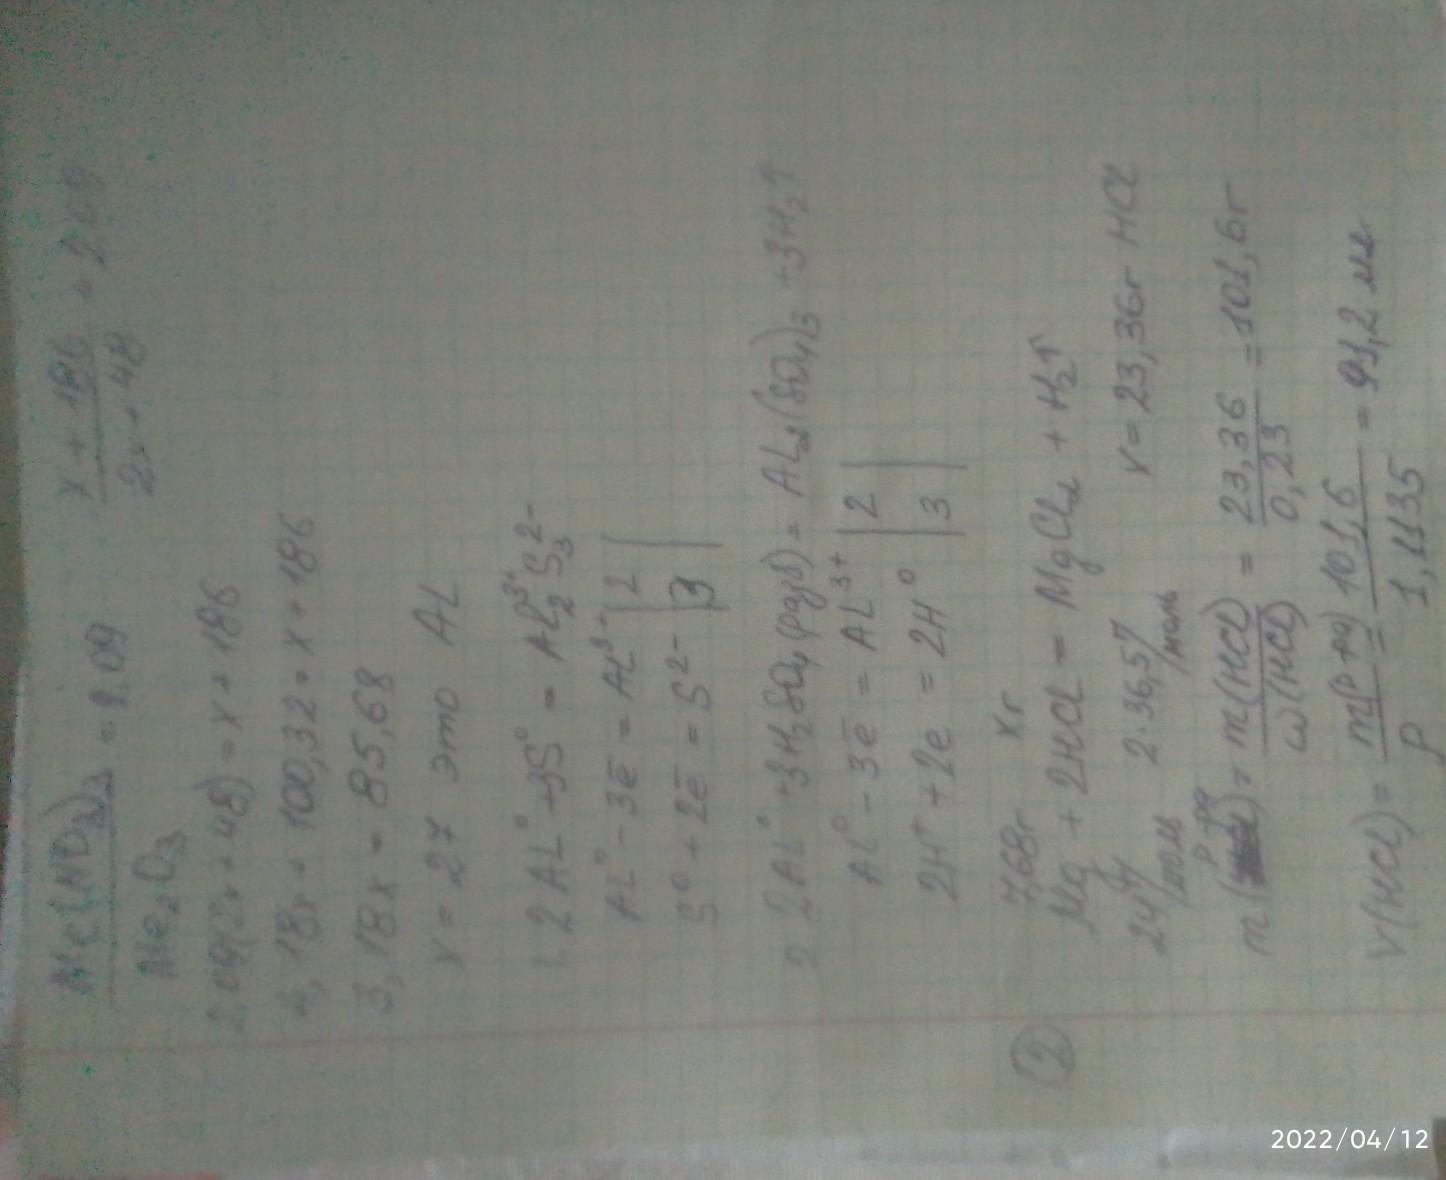 Me(NO3)3 = 2,09 x + 186 = 2,09
Me2O3 2x + 48
2,09(2x+48) = x + 186
4,18x + 100,32 = x + 186
3,18x = 85,68
x = 27 это AL
1. 2AL⁰ + 3S⁰ = AL₂³⁺S₃²⁻
AL⁰ - 3ē = AL³⁺ | 2 |
S⁰ + 2ē = S²⁻ | 3 |
2 2AL⁰ + 3H2SO4(разб) = AL2(SO4)3 + 3H2↑
AL⁰ - 3ē = AL³⁺ | 2 |
2H⁺ + 2e = 2H⁰ | 3 |
7,68г xг
② Mg + 2HCl = MgCl2 + H2↑
24 г/моль 2·36,5 г/моль x = 23,36г HCl
m(р-ра) = m(HCl)/ω(HCl) = 23,36/0,23 = 101,6г
V(HCl) = m(р-ра)/ρ = 101,6/1,1135 = 91,2 мл
2022/04/12